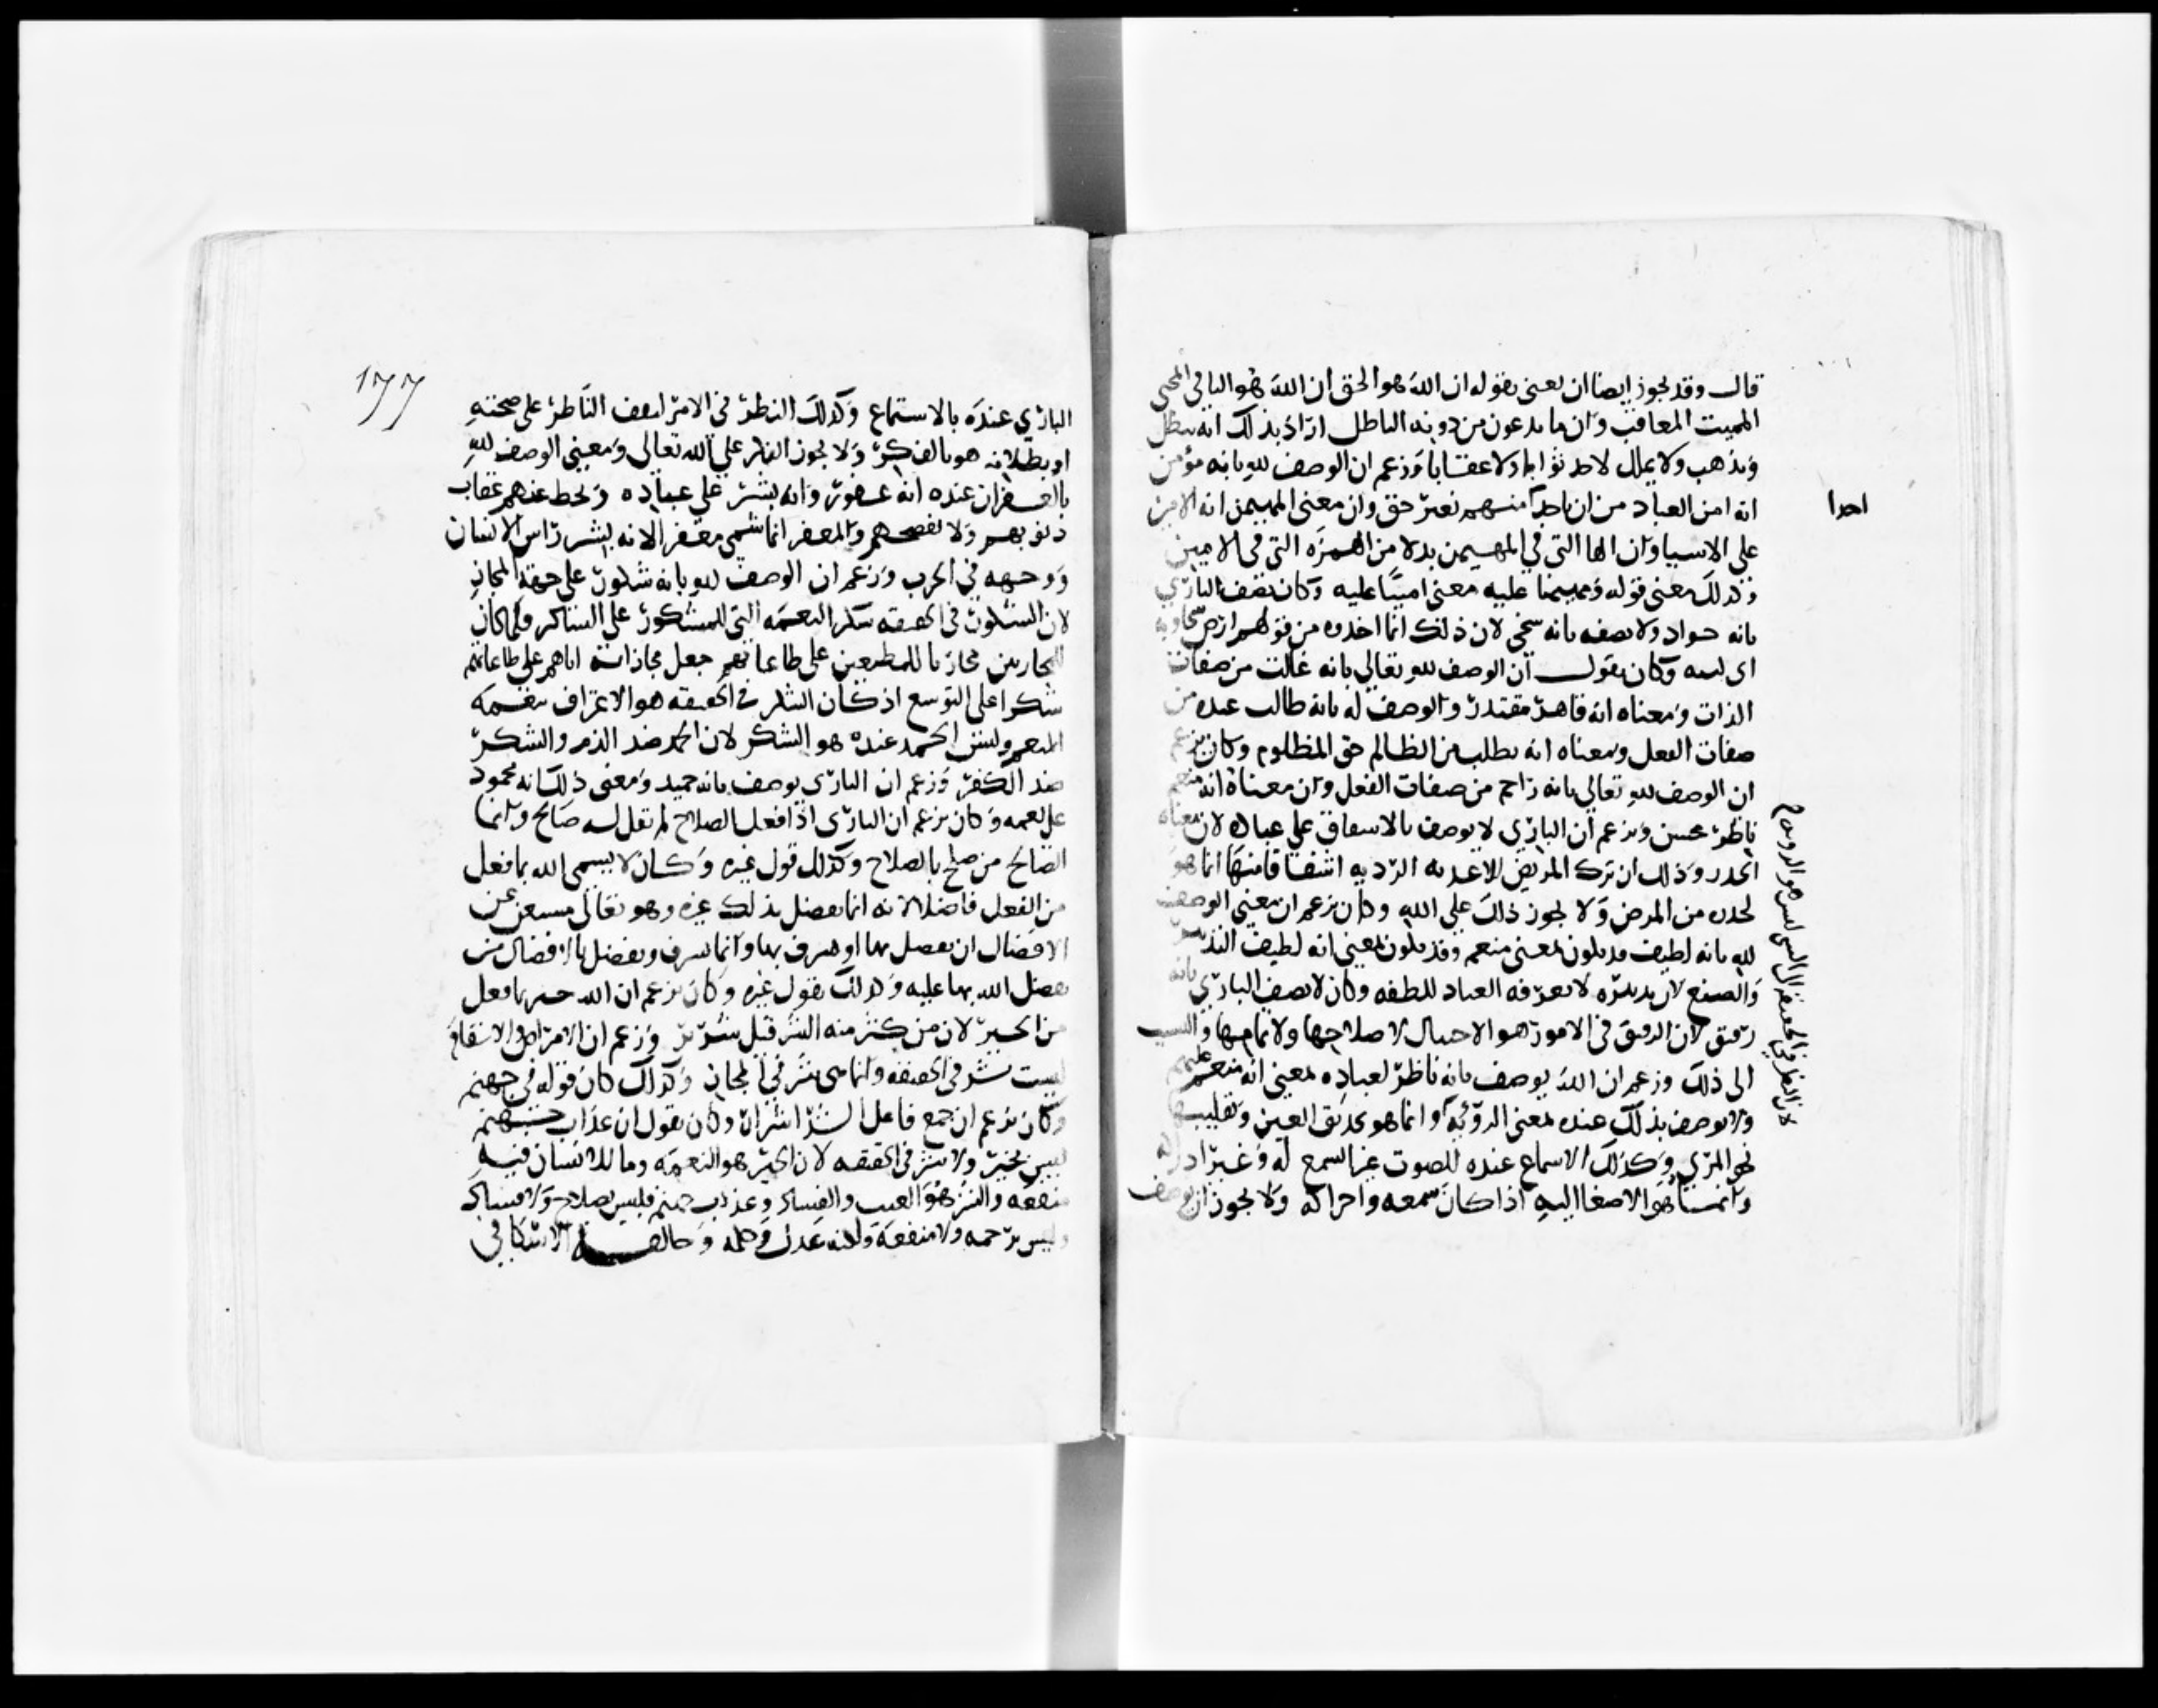 قال وقد يجوز ايضا ان يعني بقوله ان الله هو الحق ان الله هو الباقي المحيي
المميت المعاقب وان ما يدعون من دونه الباطل اراد بذلك انه يبطل
ويذهب ولا يملك لاحد ثوابا ولا عقابا وزعم ان الوصف لله بانه مؤمن
انه امن العباد من ان ياخذ منهم بغير حق وان معنى المهيمن انه الامين
احدا
على الاسيا وان الها التي في المهيمن بدلا من الهمزه التي في الامين
وكذلك معنى قوله ومهيمنا عليه معنى امينا عليه وكان يصف الباري
بانه جواد ولا يصفه بانه سخي لان ذلك انما اخذوه من قولهم ارض سخاويه
اى لينه وكان يقول ان الوصف لله تعالى بانه غالب من صفات
الذات ومعناه انه قاهر مقتدر والوصف له بانه طالب عنده من
صفات الفعل ومعناه انه يطلب من الظالم حق المظلوم وكان يزعم
ان الوصف لله تعالى بانه راحم من صفات الفعل وان معناه انه منعم
ناظر محسن ويزعم ان الباري لا يوصف بالاسفاق على عباده لان معناه
الحذر وذلك ان ترك المريض للاغديه الرديه اشفاقا منها انما هو
لحذره من المرض ولا يجوز ذلك على الله وكان يزعم ان معنى الوصف
لله بانه لطيف قد يكون بمعنى منعم وقد يكون بمعنى انه لطيف التدبير
والصنع لان تدبيره لا يعرفه العباد للطفه وكان لا يصف الباري بانه
رفيق لان الرفق في الامور هو الاحتيال لاصلاحها ولاتمامها والتسبب
الى ذلك وزعم ان الله يوصف بانه ناظر لعباده بمعنى انه منعم عليهم
ولا يوصف بذلك عنده بمعنى الرؤيه وانما هو تحديق العين وتقليبها
لان النظر في الحقيقه الى الشى ليس هو الرويه
نحو المرى وكذلك الاسماع عنده للصوت غير السمع له وغير ادراكه
وانما هو الاصغا اليه اذا كان سمعه وادراكه ولا يجوز ان يوصف
177
الباري عنده بالاستماع وكذلك النظر في الامر ليقف الناظر على صحته
او بطلانه هو بالفكر ولا يجوز الفكر على الله تعالى ومعنى الوصف لله
بالغفران عنده انه غفور وانه يستر على عباده ويحط عنهم عقاب
ذنوبهم ولا يفضحهم والمغفر انما سمى مغفرا لانه يستر راس الانسان
ووجهه في الحرب وزعم ان الوصف لله بانه شكور على جهة المجاز
لان الشكور في الحقيقه شكر النعمه التي للمشكور على الشاكر فلما كان
محازيا للمطيعين على طاعاتهم جعل مجازاته اياهم على طاعاتهم
شكرا على التوسع اذ كان الشكر في الحقيقه هو الاعتراف بنعمه
المنعم وليس الحمد عنده هو الشكر لان الحمد ضد الذم والشكر
ضد الكفر وزعم ان الباري يوصف بانه حميد ومعنى ذلك انه محمود
على نعمه وكان يزعم ان الباري اذا فعل الصلاح لم يقل له صالح وانما
الصالح من صلح بالصلاح وكذلك قول غيره وكان لا يسمى الله بما فعل
من الفعل فاضلا لانه انما يفضل بذلك غيره وهو تعالى مستغن عن
الافضال ان يفضل بها او يشرف بها وانما يشرف ويفضل بالافضال من
يفضل الله بها عليه وكذلك يقول غيره وكان يزعم ان الله خير بما فعل
من الخير لان من كثر منه الشر قيل شرير وزعم ان الامراض والاسقام
ليست بشر في الحقيقه وانما هى شر في المجاز وكذلك كان قوله في جهنم
وكان يزعم ان جمع فاعل الشر اشرار وكان يقول ان عذاب جهنم
ليس بخير ولا شر في الحقيقه لان الخير هو النعمه وما للانسان فيه
منفعه والشر هو العبث والفساد وعذاب جهنم فليس بصلاح ولا فساد
وليس برحمه ولا منفعة ولكنه عدل وحكمه وخالفه الاسكافي